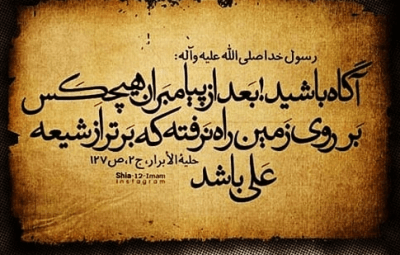 رسول خدا صلی الله علیه وآله:
آگاه باشید! بعد از پیامبران هیچکس
بر روی زمین راه نرفته که برتر از شیعه
علی باشد
حلیة الأبرار، ج۲، ص ۱۲۷
Shia-12-Imam
instagram